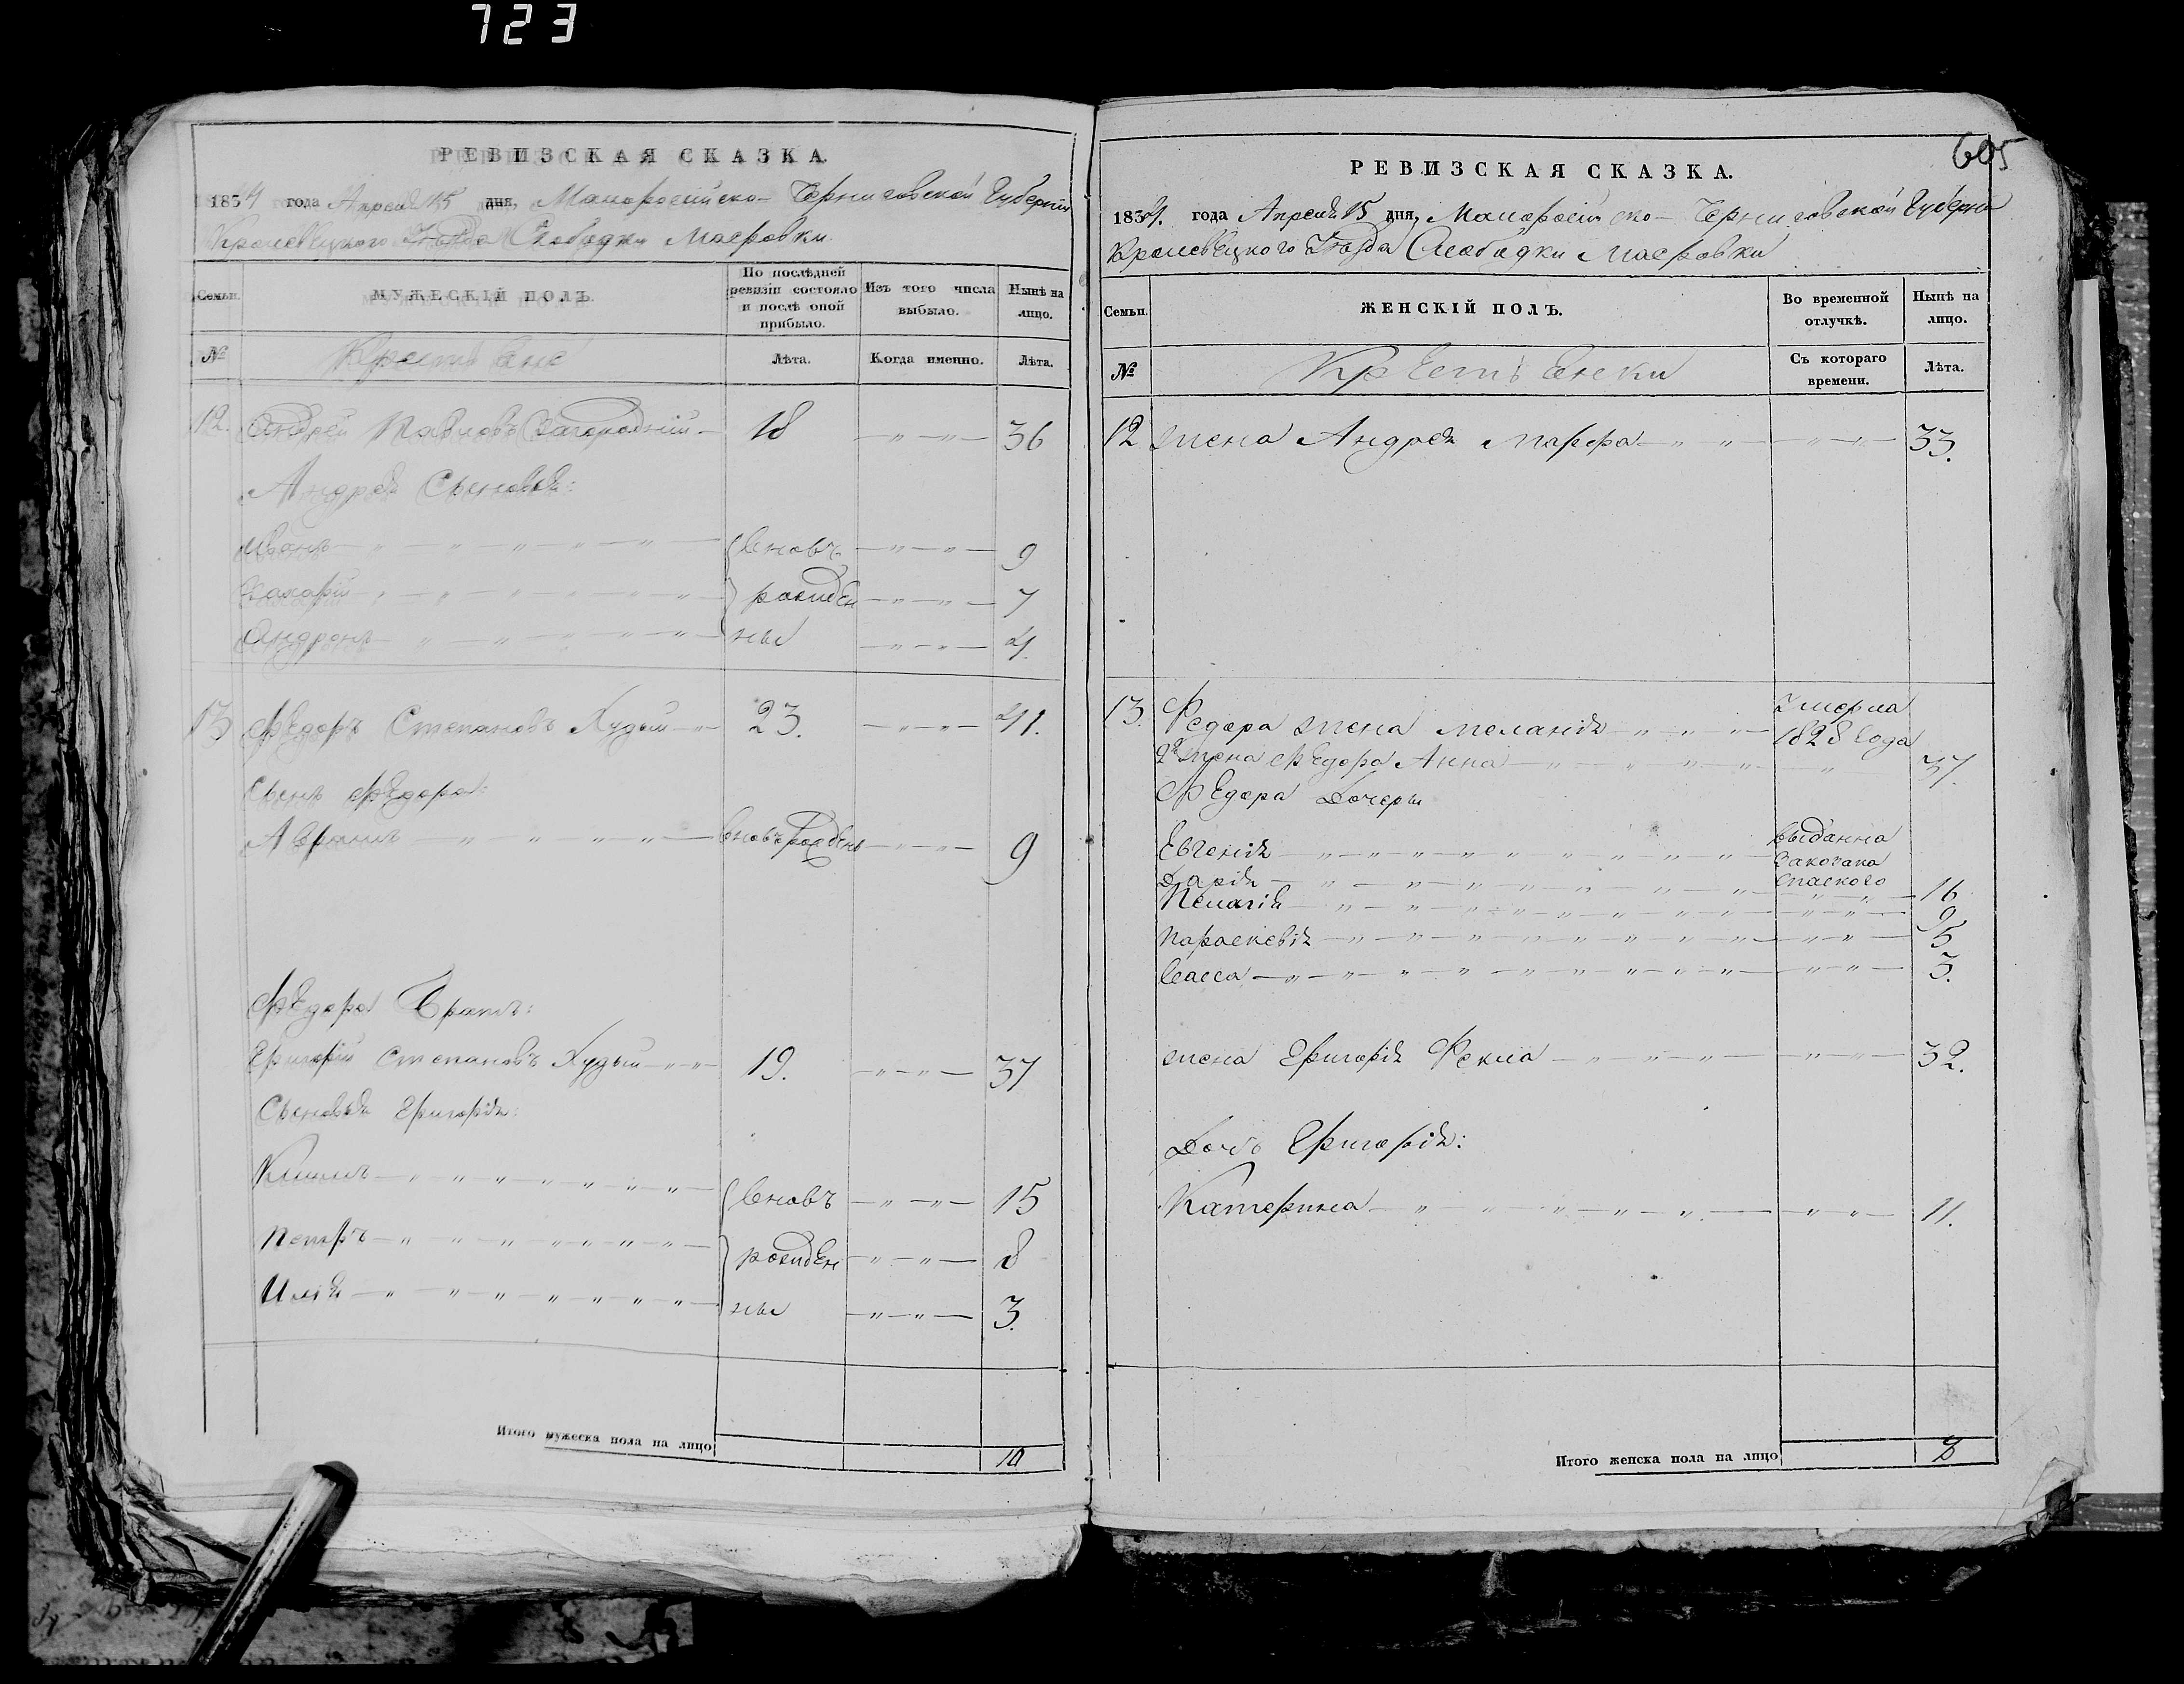 723
РЕВИЗСКАЯ СКАЗКА.
1834 года Апреля 15 дня, Малоросійско- Черниговской Губерніи
Кролевецкого Уезда Слободки Маеровки
Семьи.
МУЖЕСКІЙ ПОЛЪ.
По послѣдней ревизіи состояло и послѣ оной прибыло.
Изъ того числа выбыло.
Нынѣ на лицо.
№
Крестьяне
Лѣта.
Когда именно.
Лѣта.
12. Андрей Павловъ Загородній 18 36
Андрея Сыновья:
Иванъ вновь 9
Захарій рожден 7
Андронъ ны 4
13 Федоръ Степановъ Худый 23. 41.
Сынъ Федора:
Аврамъ вновь рожденъ 9
Федора Братъ:
Григорій Степановъ Худый 19. 37
Сыновья Григорія:
вновь 15
Петръ рожден 8
Илія ны 3.
Итого мужеска пола на лицо 10
605
РЕВИЗСКАЯ СКАЗКА.
1834. года Апреля 15 дня, Малоросійско- Черниговской Губерніи
Кролевецкого Уезда Слободки Маеровки
Семьи.
ЖЕНСКІЙ ПОЛЪ.
Во временной отлучкѣ.
Нынѣ на лицо.
№
Крестьянки
Съ котораго времени.
Лѣта.
12 жена Андрея Марфа 33.
13. Федора жена Меланія умерла 1828 года
2я жена Федора Анна 37.
Федора Дочеры
Евгенія выданна
Дарія закозака спаского 16
Пелагія 9
Параскевія 5
Васса 3.
жена Григорія Фекла 32.
Дочь Григорія:
Катерина 11.
Итого женска пола на лицо 8